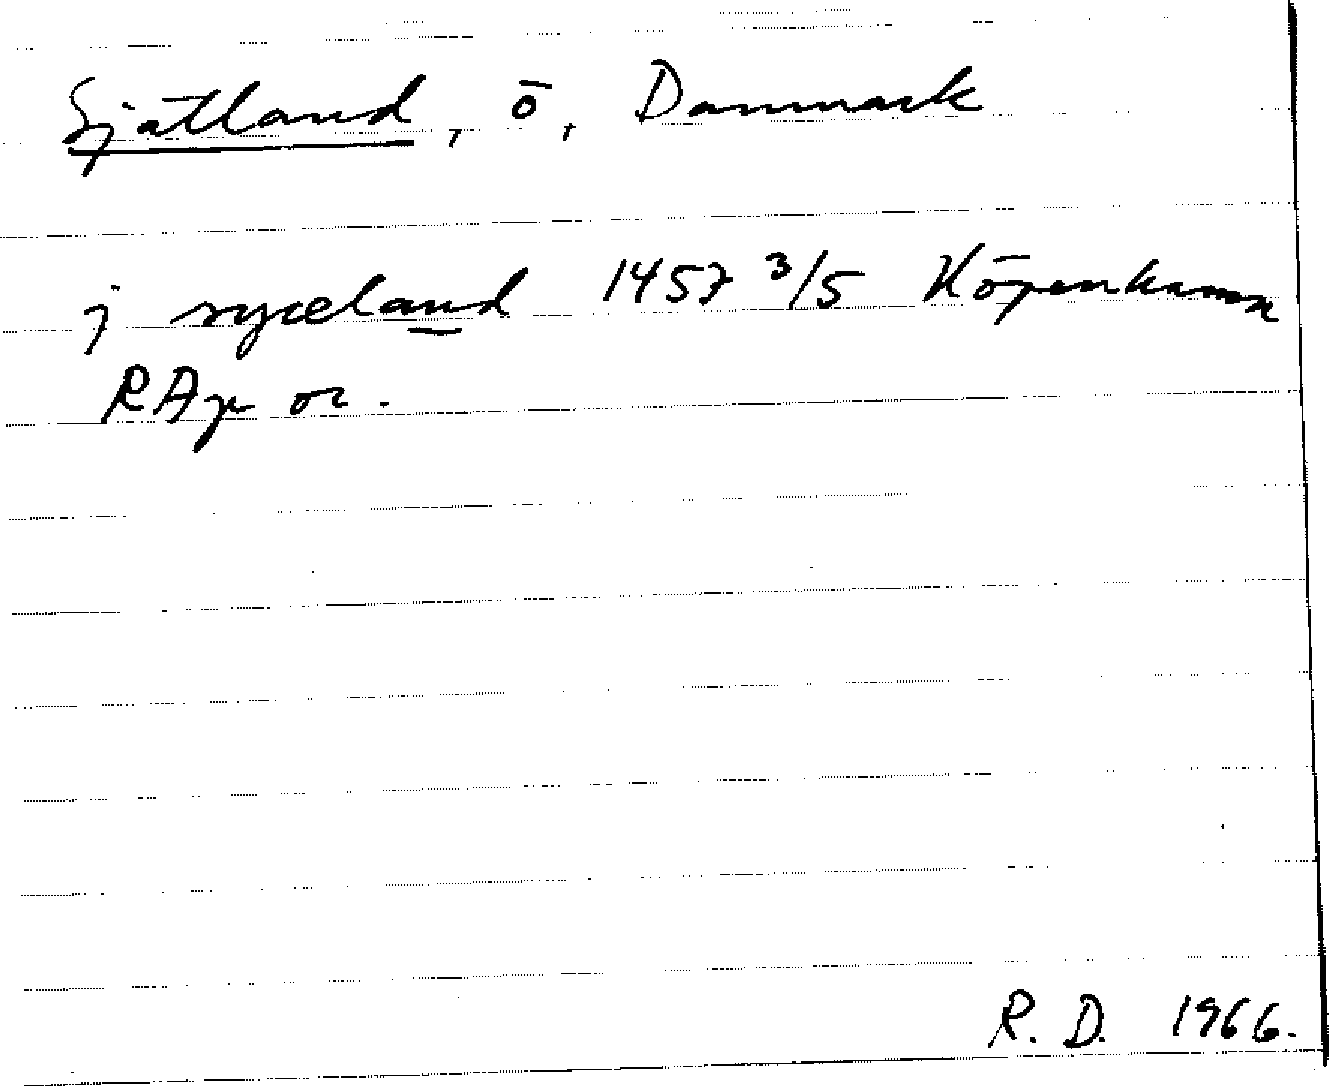 Själland, ö, Danmark
j syæeland 1457 3/5 Köpenhamn
RAp or.
R. D. 1966.